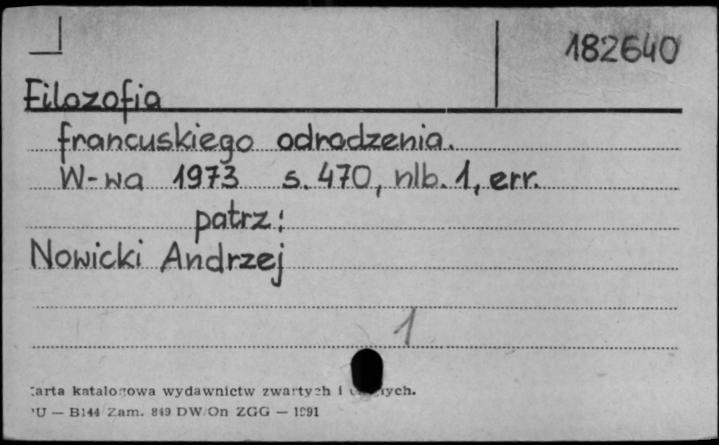 182640
Filozofia
francuskiego odrodzenia.
W-wa 1973 s. 470, nlb. 1, err.
patrz:
Nowicki Andrzej
1
arta katalogowa wydawnictw zwartych i
PU — B144 Zam. 849 DW/On ZGG — 1991